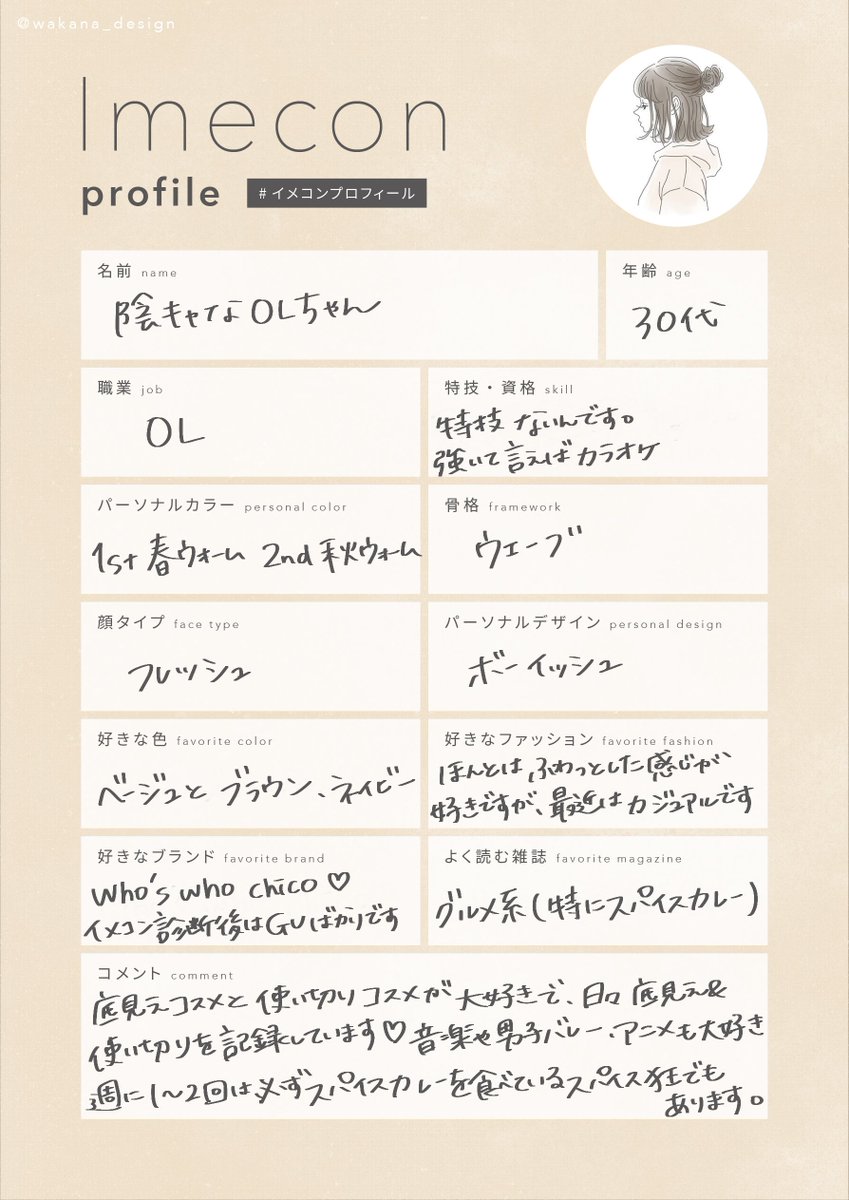 @wakana_design
Imecon
profile
#イメコンプロフィール
名前 name
陰キャなOLちゃん
年齢 age
30代
職業 job
OL
特技・資格 skill
特技ないんです。
強いて言えばカラオケ
パーソナルカラー personal color
1st 春ウォーム 2nd 秋ウォーム
骨格 framework
ウェーブ
顔タイプ face type
フレッシュ
パーソナルデザイン personal design
ボーイッシュ
好きな色 favorite color
ベージュと ブラウン、ネイビー
好きなファッション favorite fashion
ほんとは ふわっとした感じが
好きですが、最近はカジュアルです
好きなブランド favorite brand
who's who chico ♡
イメコン診断後はGUばかりです
よく読む雑誌 favorite magazine
グルメ系(特にスパイスカレー)
コメント comment
底見えコスメと使い切りコスメが大好きで、日々底見え&
使い切りを記録しています♡音楽や男子バレー、アニメも大好き
週に1〜2回は必ずスパイスカレーを食べているスパイス狂でも
あります。